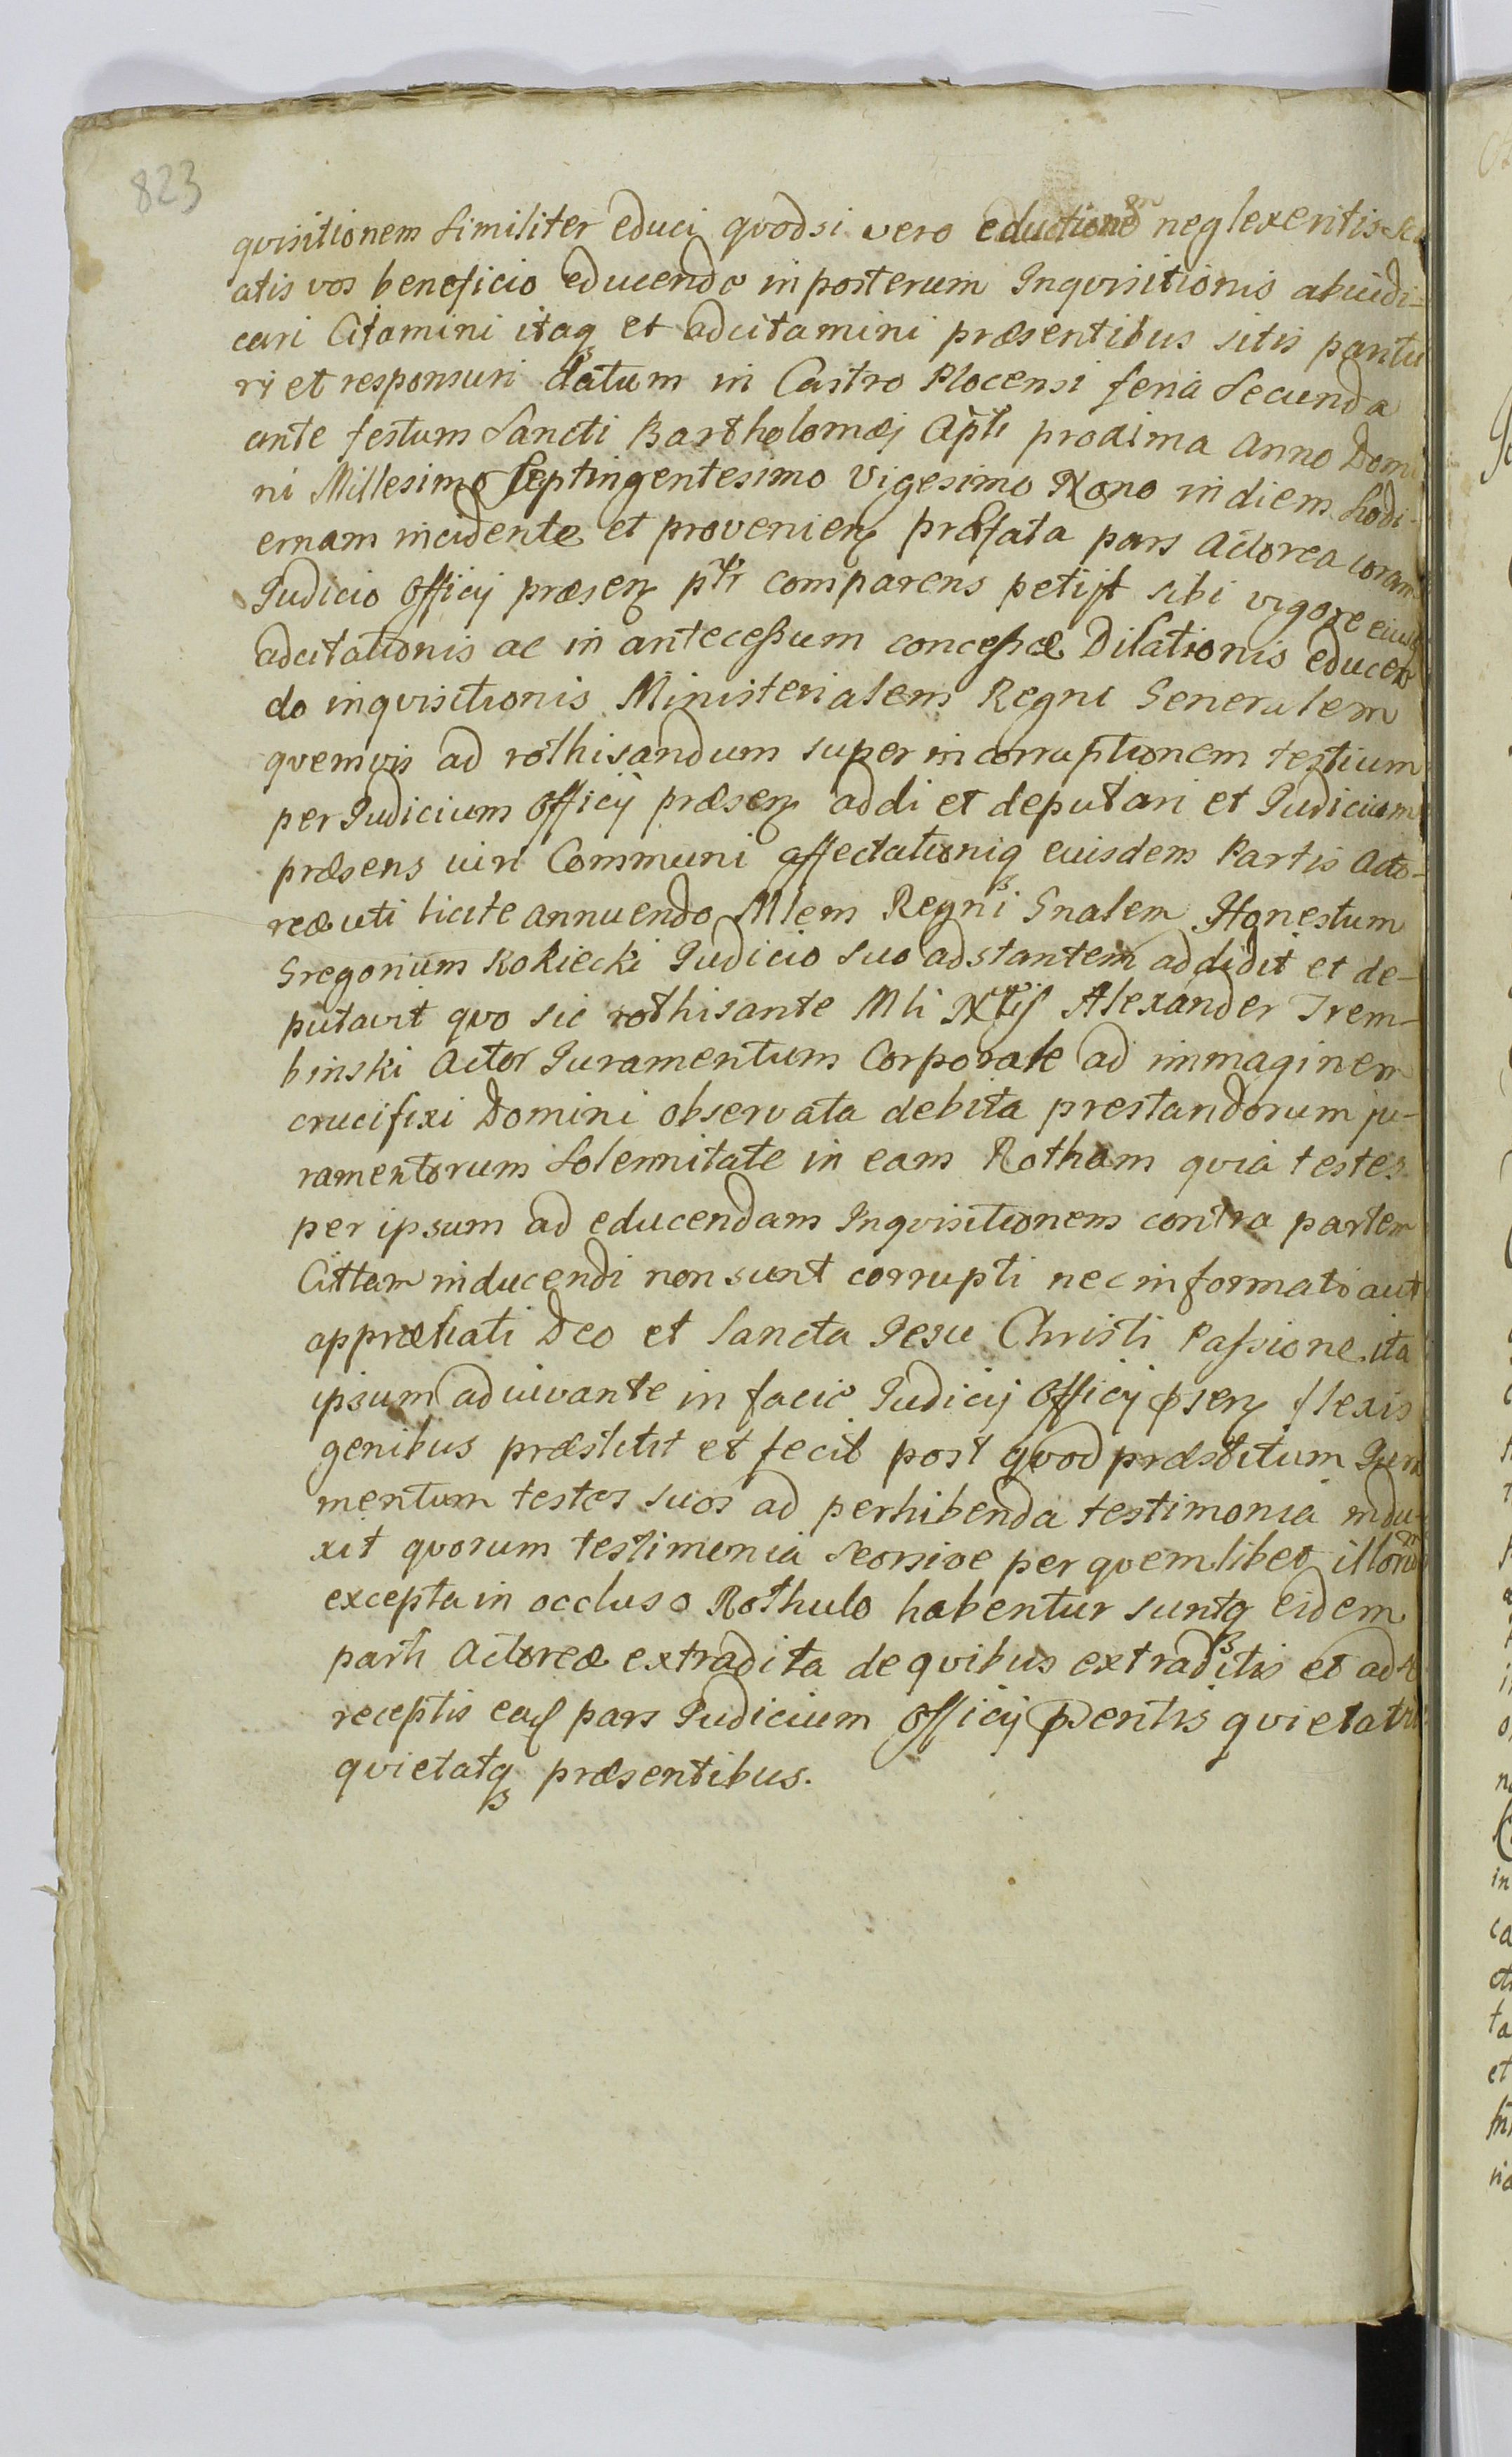 823
qvisitionem similiter educi qvodsi vero eductione neglexeritis Sci
atis vos beneficio educendo in posterum Inqvisitionis abiudi-
cari Citamini itaq et adcitamini præsentibus sitis paritu
ri et responsuri datum in Castro Plocensi feria Secunda
ante festum Sancti Bartholomæi Aptli proxima Anno Domi
ni Millesimo Septingentesimo Vigesimo Nono in diem hodi-
ernam incidente et provenien præfata pars Actorea coram
Judicio Officij præsen ptr comparens petijt sibi vigore eiusd
adcitationis ac in antecessum concessæ Dilationis educen
do inqvisitionis Ministerialem Regni Generalem
qvemvis ad rothisandum super incorruptionem testium
per Judicium Officij præsen addi et deputari et Judicium
præsens iuri Communi affectationiq eiusdem Partis Acto-
reæ uti licite annuendo Mlem Regni Gnalem Honestum
Gregorium Rokiecki Judicio suo adstantem addidit et de-
putavit qvo sic rothisante Mli Alexander Trem-
binski Actor Juramentum Corporale ad immaginem
crucifixi Domini observata debita prestandorum ju-
ramentorum Solennitate in eam Rotham qvia testes
per ipsum ad educendam Inqvisitionem contra partem
Cittam inducendi non sunt corrupti nec informati aut
appretiati Deo et Sancta Jesu Christi Passione ita
ipsum adiuvante in facie Judicij Officij psen flexis
genibus præstitit et fecit post qvod præstitum Jura
mentum testes suos ad perhibenda testimonia indu-
xit qvorum testimonia seorsive per qvemlibet illorum
excepta in occluso Rothulo habentur suntq eidem
parti Actoreæ extradita de qvibus extraditis et ad se
receptis ead pars Judicium Officij psentis qvietavit
qvietatq præsentibus.